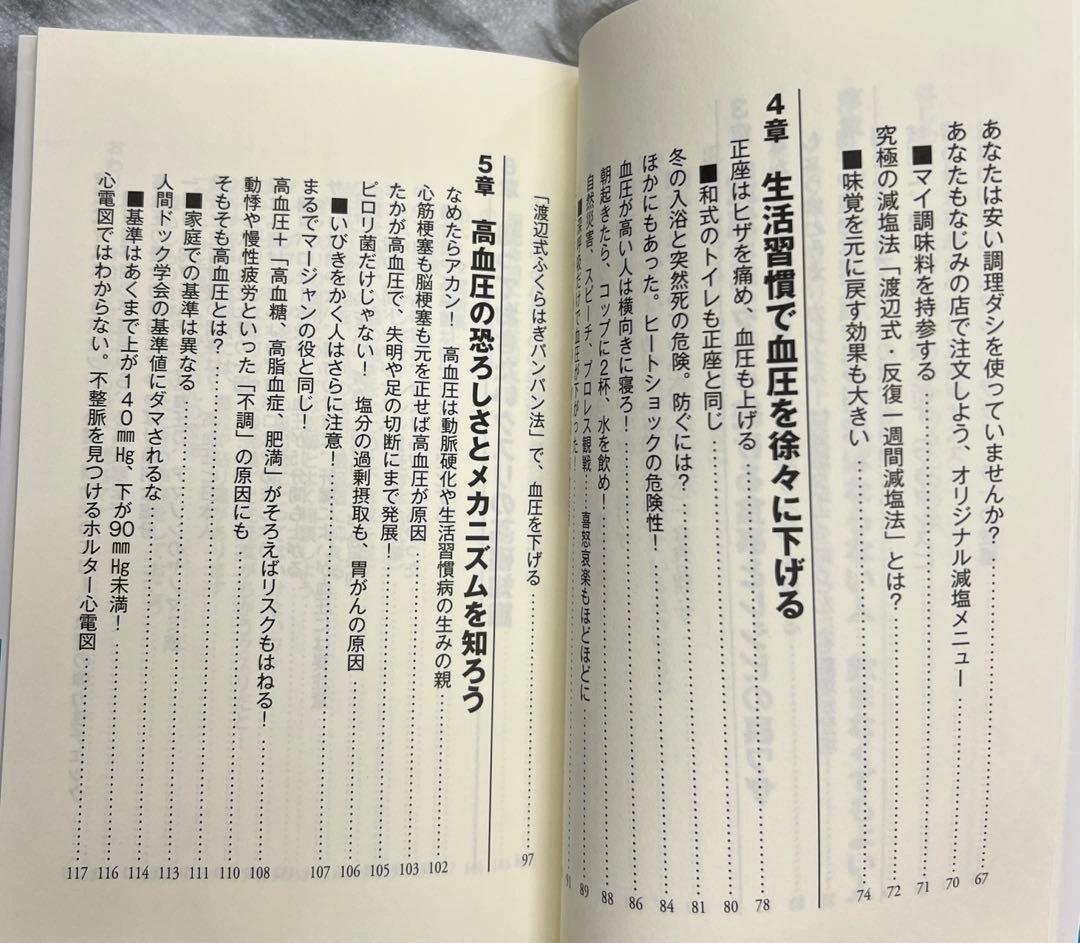 あなたは安い調理ダシを使っていませんか?……67
あなたもなじみの店で注文しよう、オリジナル減塩メニュー……70
■マイ調味料を持参する……71
究極の減塩法「渡辺式・反復一週間減塩法」とは?……72
■味覚を元に戻す効果も大きい……74
4章 生活習慣で血圧を徐々に下げる
正座はヒザを痛め、血圧も上げる……78
■和式のトイレも正座と同じ……80
冬の入浴と突然死の危険。防ぐには?……81
ほかにもあった。ヒートショックの危険性!……84
血圧が高い人は横向きに寝ろ!……86
朝起きたら、コップに2杯、水を飲め!……88
自然災害、スピーチ、プロレス観戦……喜怒哀楽もほどほどに……89
■深呼吸だけで血圧が下がった!……91
「渡辺式ふくらはぎパンパン法」で、血圧を下げる……97
5章 高血圧の恐ろしさとメカニズムを知ろう
なめたらアカン! 高血圧は動脈硬化や生活習慣病の生みの親……102
心筋梗塞も脳梗塞も元を正せば高血圧が原因……103
たかが高血圧で、失明や足の切断にまで発展!……105
ピロリ菌だけじゃない! 塩分の過剰摂取も、胃がんの原因……106
■いびきをかく人はさらに注意!……107
まるでマージャンの役と同じ!
高血圧+「高血糖、高脂血症、肥満」がそろえばリスクもはねる!……108
動悸や慢性疲労といった「不調」の原因にも……110
そもそも高血圧とは?……111
■家庭での基準は異なる……113
人間ドック学会の基準値にダマされるな……114
■基準はあくまで上が140㎜Hg、下が90㎜Hg未満!……116
心電図ではわからない。不整脈を見つけるホルター心電図……117